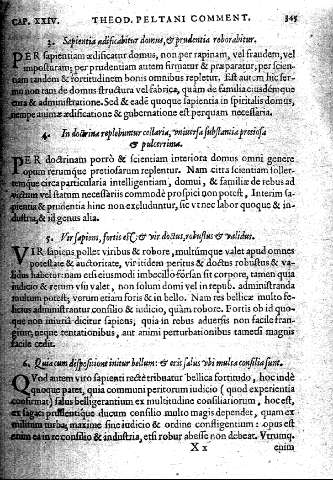 CAP. XXIV. THEOD. PELTANI COMMENT. 345
3. Sapientia ædificabitur domus, & prudentia roborabitur.
PER sapientiam ædificatur domus, non per rapinam, vel fraudem, vel
imposturam; per prudentiam autem firmatur & præparatur; per scien-
tiam tandem & fortitudinem bonis omnibus repletur. Est autem hic ser-
mo non tam de domus structura vel fabrica, quàm de familia eiusdémque
cura & administratione. Sed & eadē quoque sapientia in spiritalis domus,
nempe animæ ædificatione & gubernatione est perquam necessaria.
4. In doctrina replebuntur cellaria, vniuersa substantia pretiosa
& pulcerrima.
PER doctrinam porrò & scientiam interiora domus omni genere
opum rerumque pretiosarum replentur. Nam citra scientiam soller-
temque circa particularia intelligentiam, domui, & familiæ de rebus ad
victum vel statum necessariis commodè prospici non potest. Interim sa-
pientia & prudentia hinc non excluduntur, sic vt nec labor quoque & in-
dustria, & id genus alia.
5. Vir sapiens, fortis est: & vir doctus, robustus & validus.
VIR sapiens pollet viribus & robore, multúmque valet apud omnes
potestate & auctoritate, vir itidem peritus & doctus robustus & va-
lidus habetur: nam etsi eiusmodi imbecillo forsan sit corpore, tamen quia
iudicio & rerum vsu valet, non solum domi vel in repub. administranda
multum potest; verum etiam foris & in bello. Nam res bellicæ multo fe-
licius administrantur consilio & iudicio, quàm robore. Fortis ob id quo-
que non iniuriâ dicitur sapiens; quia in rebus aduersis non facilè fran-
gitur, neque tentationibus, aut animi perturbationibus tametsi magnis
facilè cedit.
6. Quia cum dispositione initur bellum: & erit salus vbi multa consilia sunt.
QVod autem viro sapienti rectè tribuatur bellica fortitudo, hoc indè
quoque patet, quia communi peritorum iudicio (quod experientia
confirmat) salus belligerantium ex multitudine consiliariorum, hoc est,
ex sagaci prudentíque ducum consilio multo magis dependet, quam ex
militum turba, maximè sine iudicio & ordine confligentium: opus est
enim ea in re consilio & industria, etsi robur abesse non debeat. Vtrumq.
X x enim